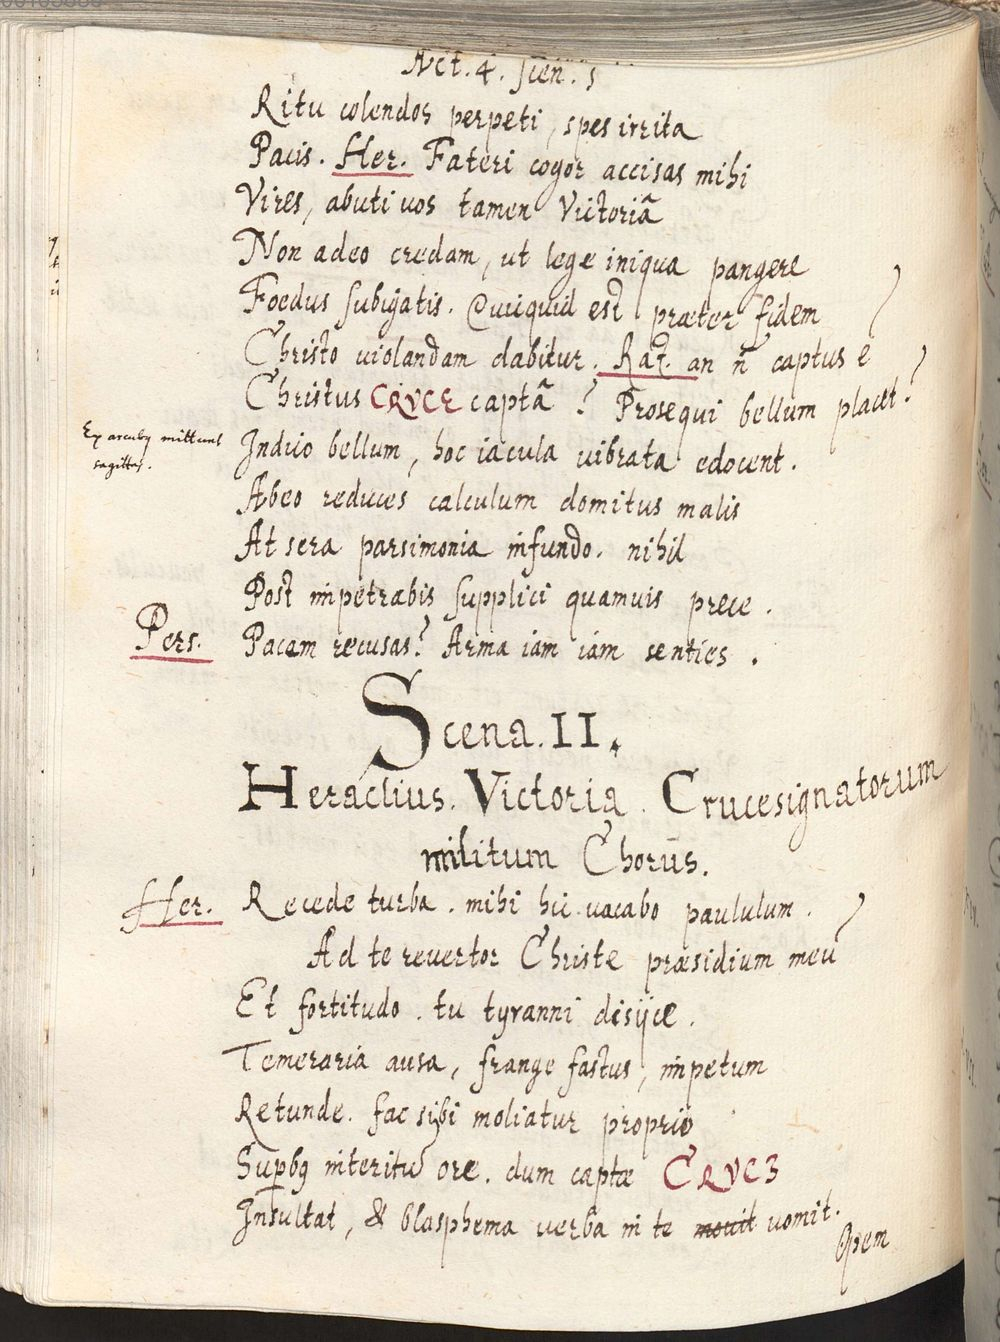 Act. 4. scen. 1
Ritu colendos perpeti, spes irrita
Pacis. Her. Fateri cogor accisas mihi
Vires, abuti vos tamen Victoriâ
Non adeo credam, ut lege iniqua pangere
Foedus subigatis. Quicquid est præter fidem
Christo violandam dabitur. Raz. an ñ captus e
Christus CRVCE captâ? Prosequi bellum placet?
Ex arcubq mittunt
sagittas.
Induo bellum, hoc iacula vibrata edocent.
Abeo reduces calculum domitus malis
At sera parsimonia in fundo. nihil
Post impetrabis supplici quamuis prece.
Pers. Pacem recusas? Arma iam iam senties.
Scena. II.
Heraclius. Victoria. Crucesignatorum
militum Chorus.
Her. Recede turba. mihi hic vacabo paululum.
Ad te revertor Christe præsidium meū
Et fortitudo. tu tyranni disijce.
Temeraria ausa, frange fastus, impetum
Retunde. fac sibi moliatur proprio
Supbq interitū ore. dum captæ CRVCJ
Insultat, & blasphema verba in te movit vomit.
Opem